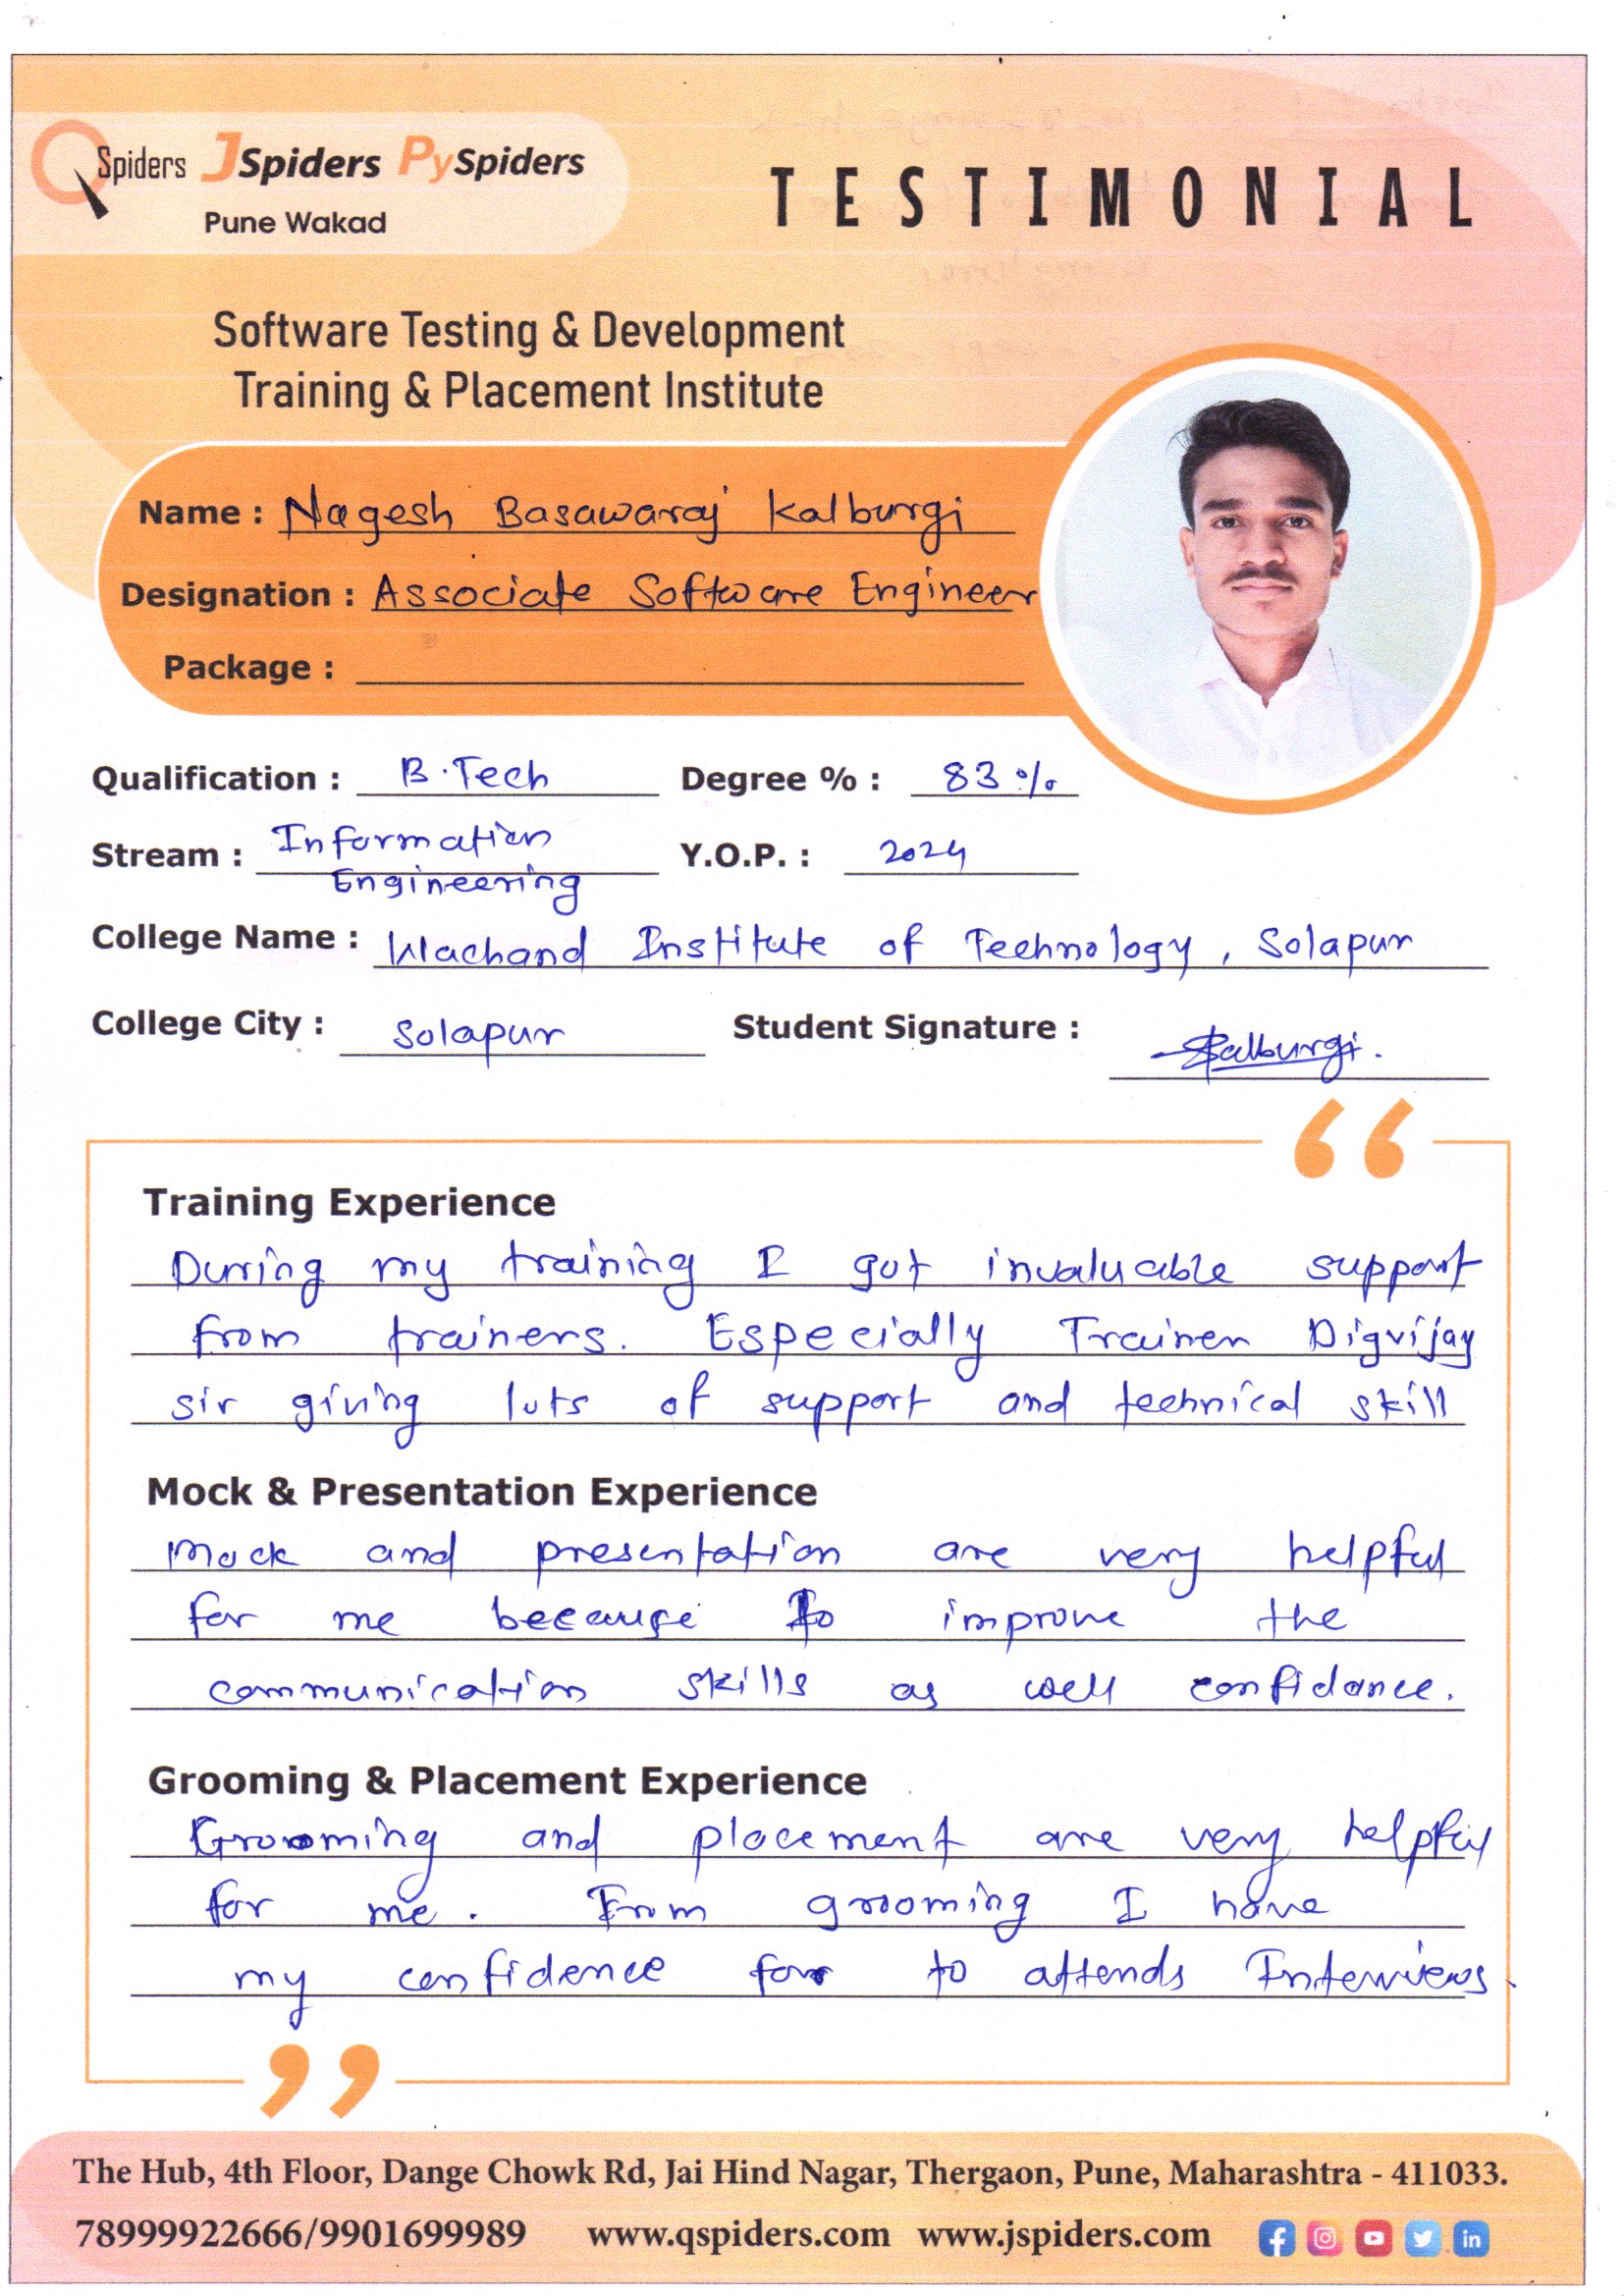 QSpiders JSpiders PySpiders
Pune Wakad
TESTIMONIAL
Software Testing & Development
Training & Placement Institute
Name : Nagesh Basawaraj Kalburgi
Designation : Associate Software Engineer
Package :
Qualification : B.Tech Degree % : 83 %
Stream : Information Engineering Y.O.P. : 2024
College Name : Walchand Institute of Technology, Solapur
College City : Solapur Student Signature : Kalburgi.
Training Experience
During my training I got invaluable support
from trainers. Especially Trainer Digvijay
sir giving lots of support and technical skill
Mock & Presentation Experience
Mock and presentation are very helpful
for me because to improve the
communication skills as well confidance.
Grooming & Placement Experience
Grooming and placement are very helpful
for me. From grooming I have
my confidence for to attends Interviews.
The Hub, 4th Floor, Dange Chowk Rd, Jai Hind Nagar, Thergaon, Pune, Maharashtra - 411033.
78999922666/9901699989 www.qspiders.com www.jspiders.com